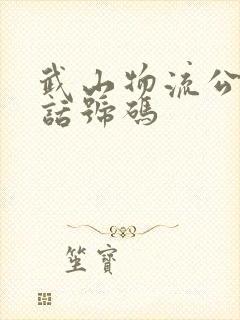 武山物流公
話號碼
坐寶